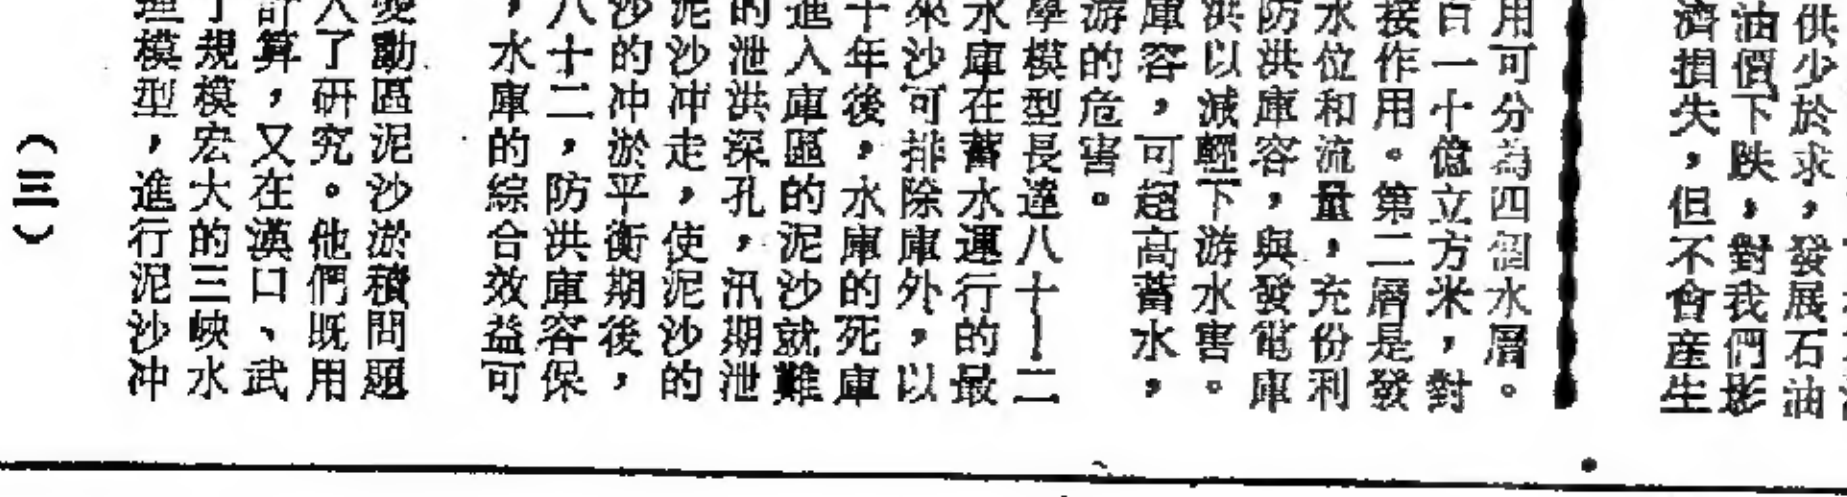 供少於求，發展石油
油價下跌，對我們影
濟損失，但不會産生
用可分為四個水層。
百一十億立方米，對
接作用。第二層是發
水位和流量，充份利
防洪庫容，與發電庫
洪以減輕下游水害。
庫容，可超高蓄水，
游的危害。
學模型長達八十一二
水庫在蓄水運行的最
來沙可排除庫外，以
十年後，水庫的死庫
進入庫區的泥沙就難
的泄洪深孔，汛期泄
泥沙冲走，使泥沙的
沙的冲淤平衡期後，
八十二，防洪庫容保
，水庫的綜合效益可
變動區泥沙淤積問題
入了研究。他們既用
計算，又在漢口、武
了規模宏大的三峽水
理模型，進行泥沙冲
（三）